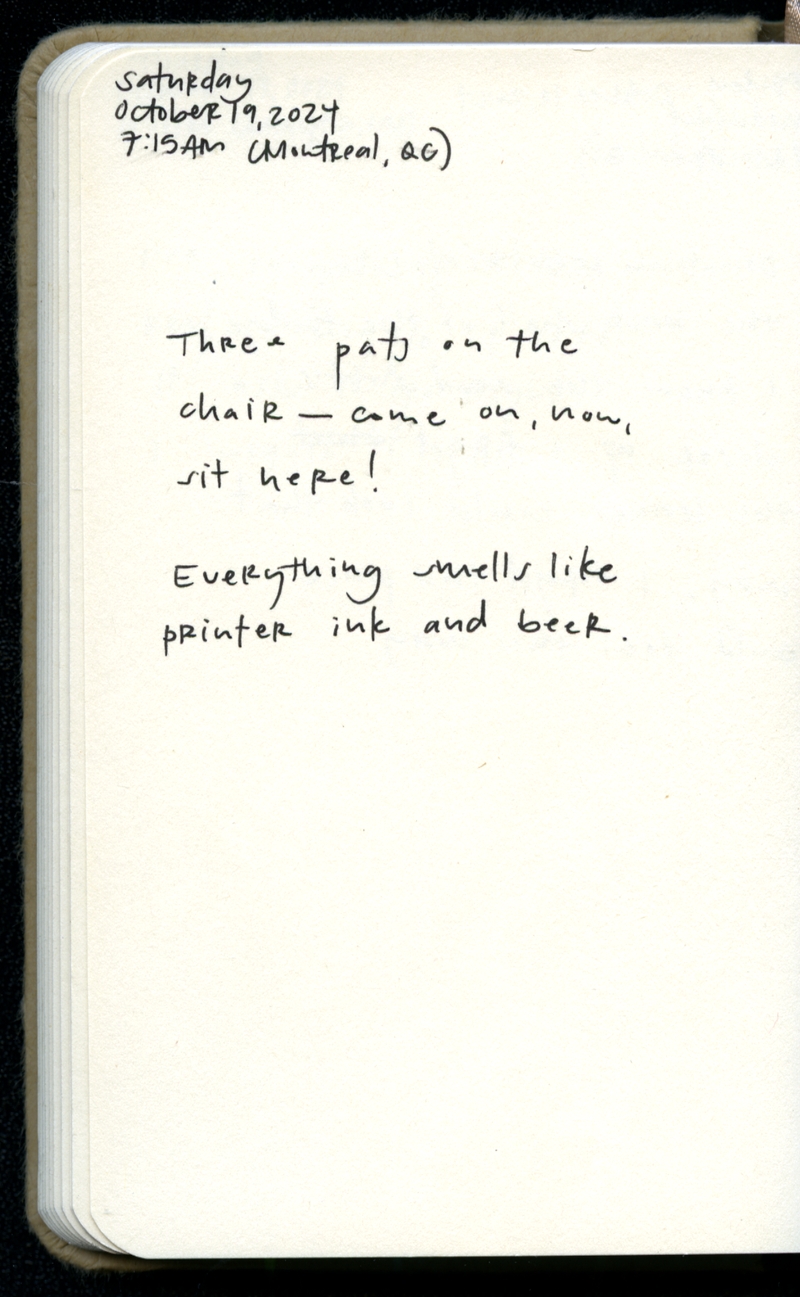 saturday
October 19, 2024
7:15AM (Montreal, QC)
Three pats on the
chair — come on, now,
sit here!
Everything smells like
printer ink and beer.